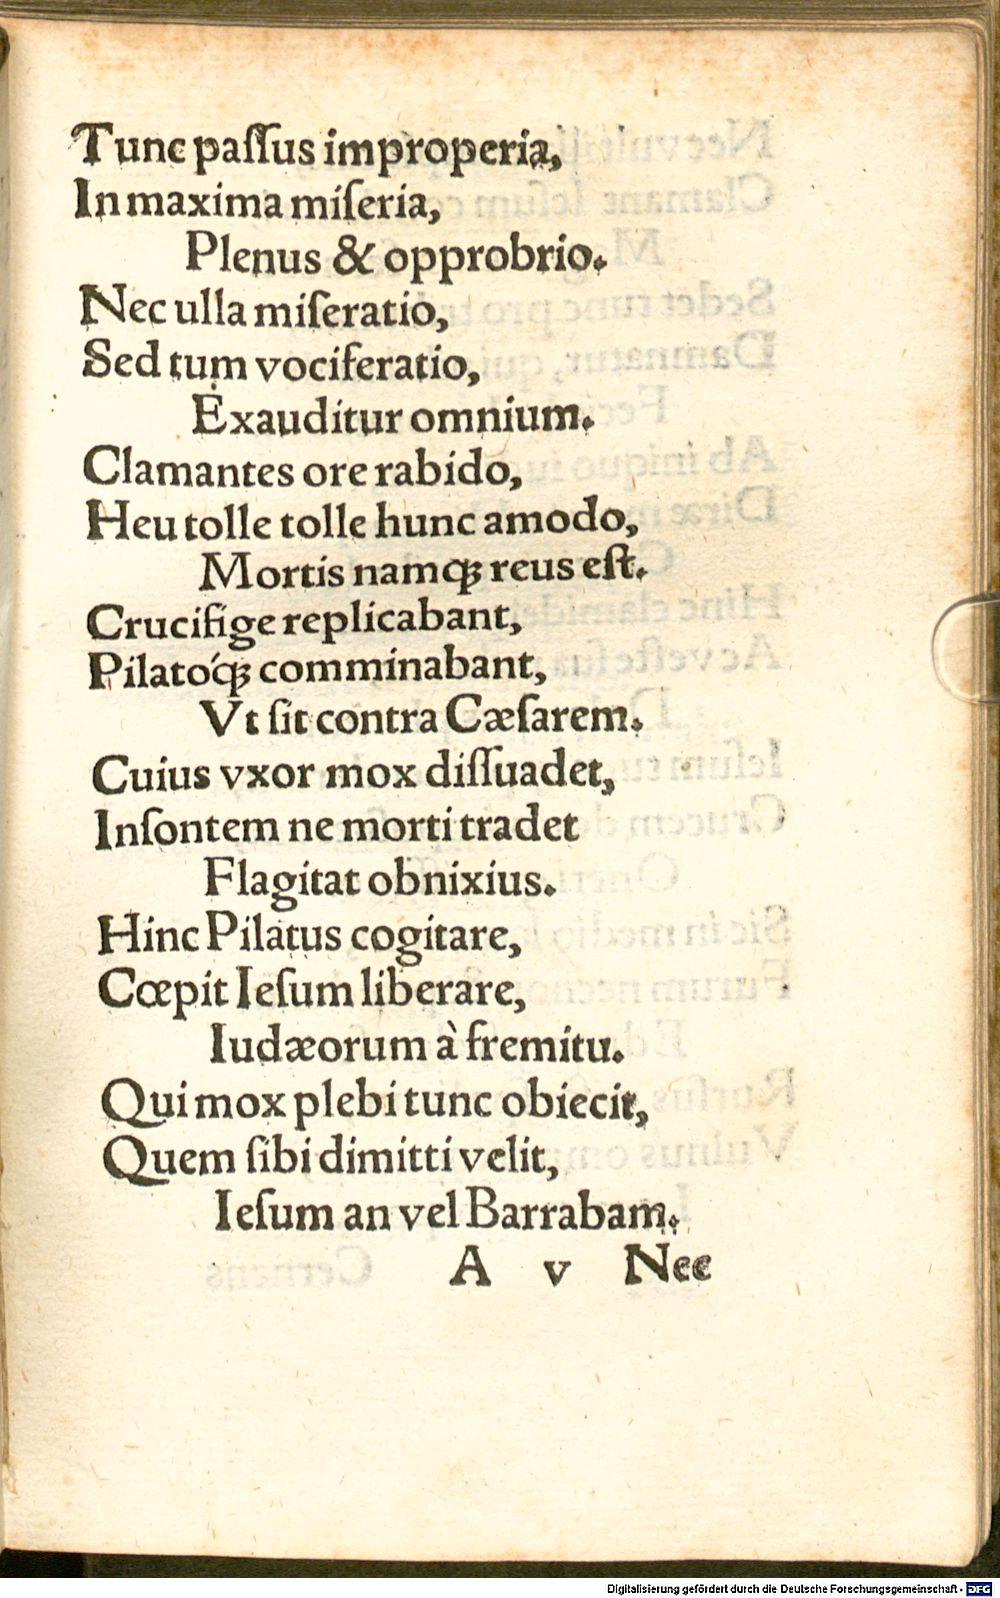 Tunc paſſus improperia,
In maxima miſeria,
Plenus & opprobrio.
Nec ulla miſeratio,
Sed tum vociferatio,
Exauditur omnium.
Clamantes ore rabido,
Heu tolle tolle hunc amodo,
Mortis namq́ꝫ reus eſt.
Crucifige replicabant,
Pilatóq́ꝫ comminabant,
Vt ſit contra Cæſarem.
Cuius vxor mox diſſuadet,
Inſontem ne morti tradet
Flagitat obnixius.
Hinc Pilatus cogitare,
Cœpit Ieſum liberare,
Iudæorum à fremitu.
Qui mox plebi tunc obiecit,
Quem ſibi dimitti velit,
Ieſum an vel Barrabam.
A v Nec
Digitalisierung gefördert durch die Deutsche Forschungsgemeinschaft - DFG